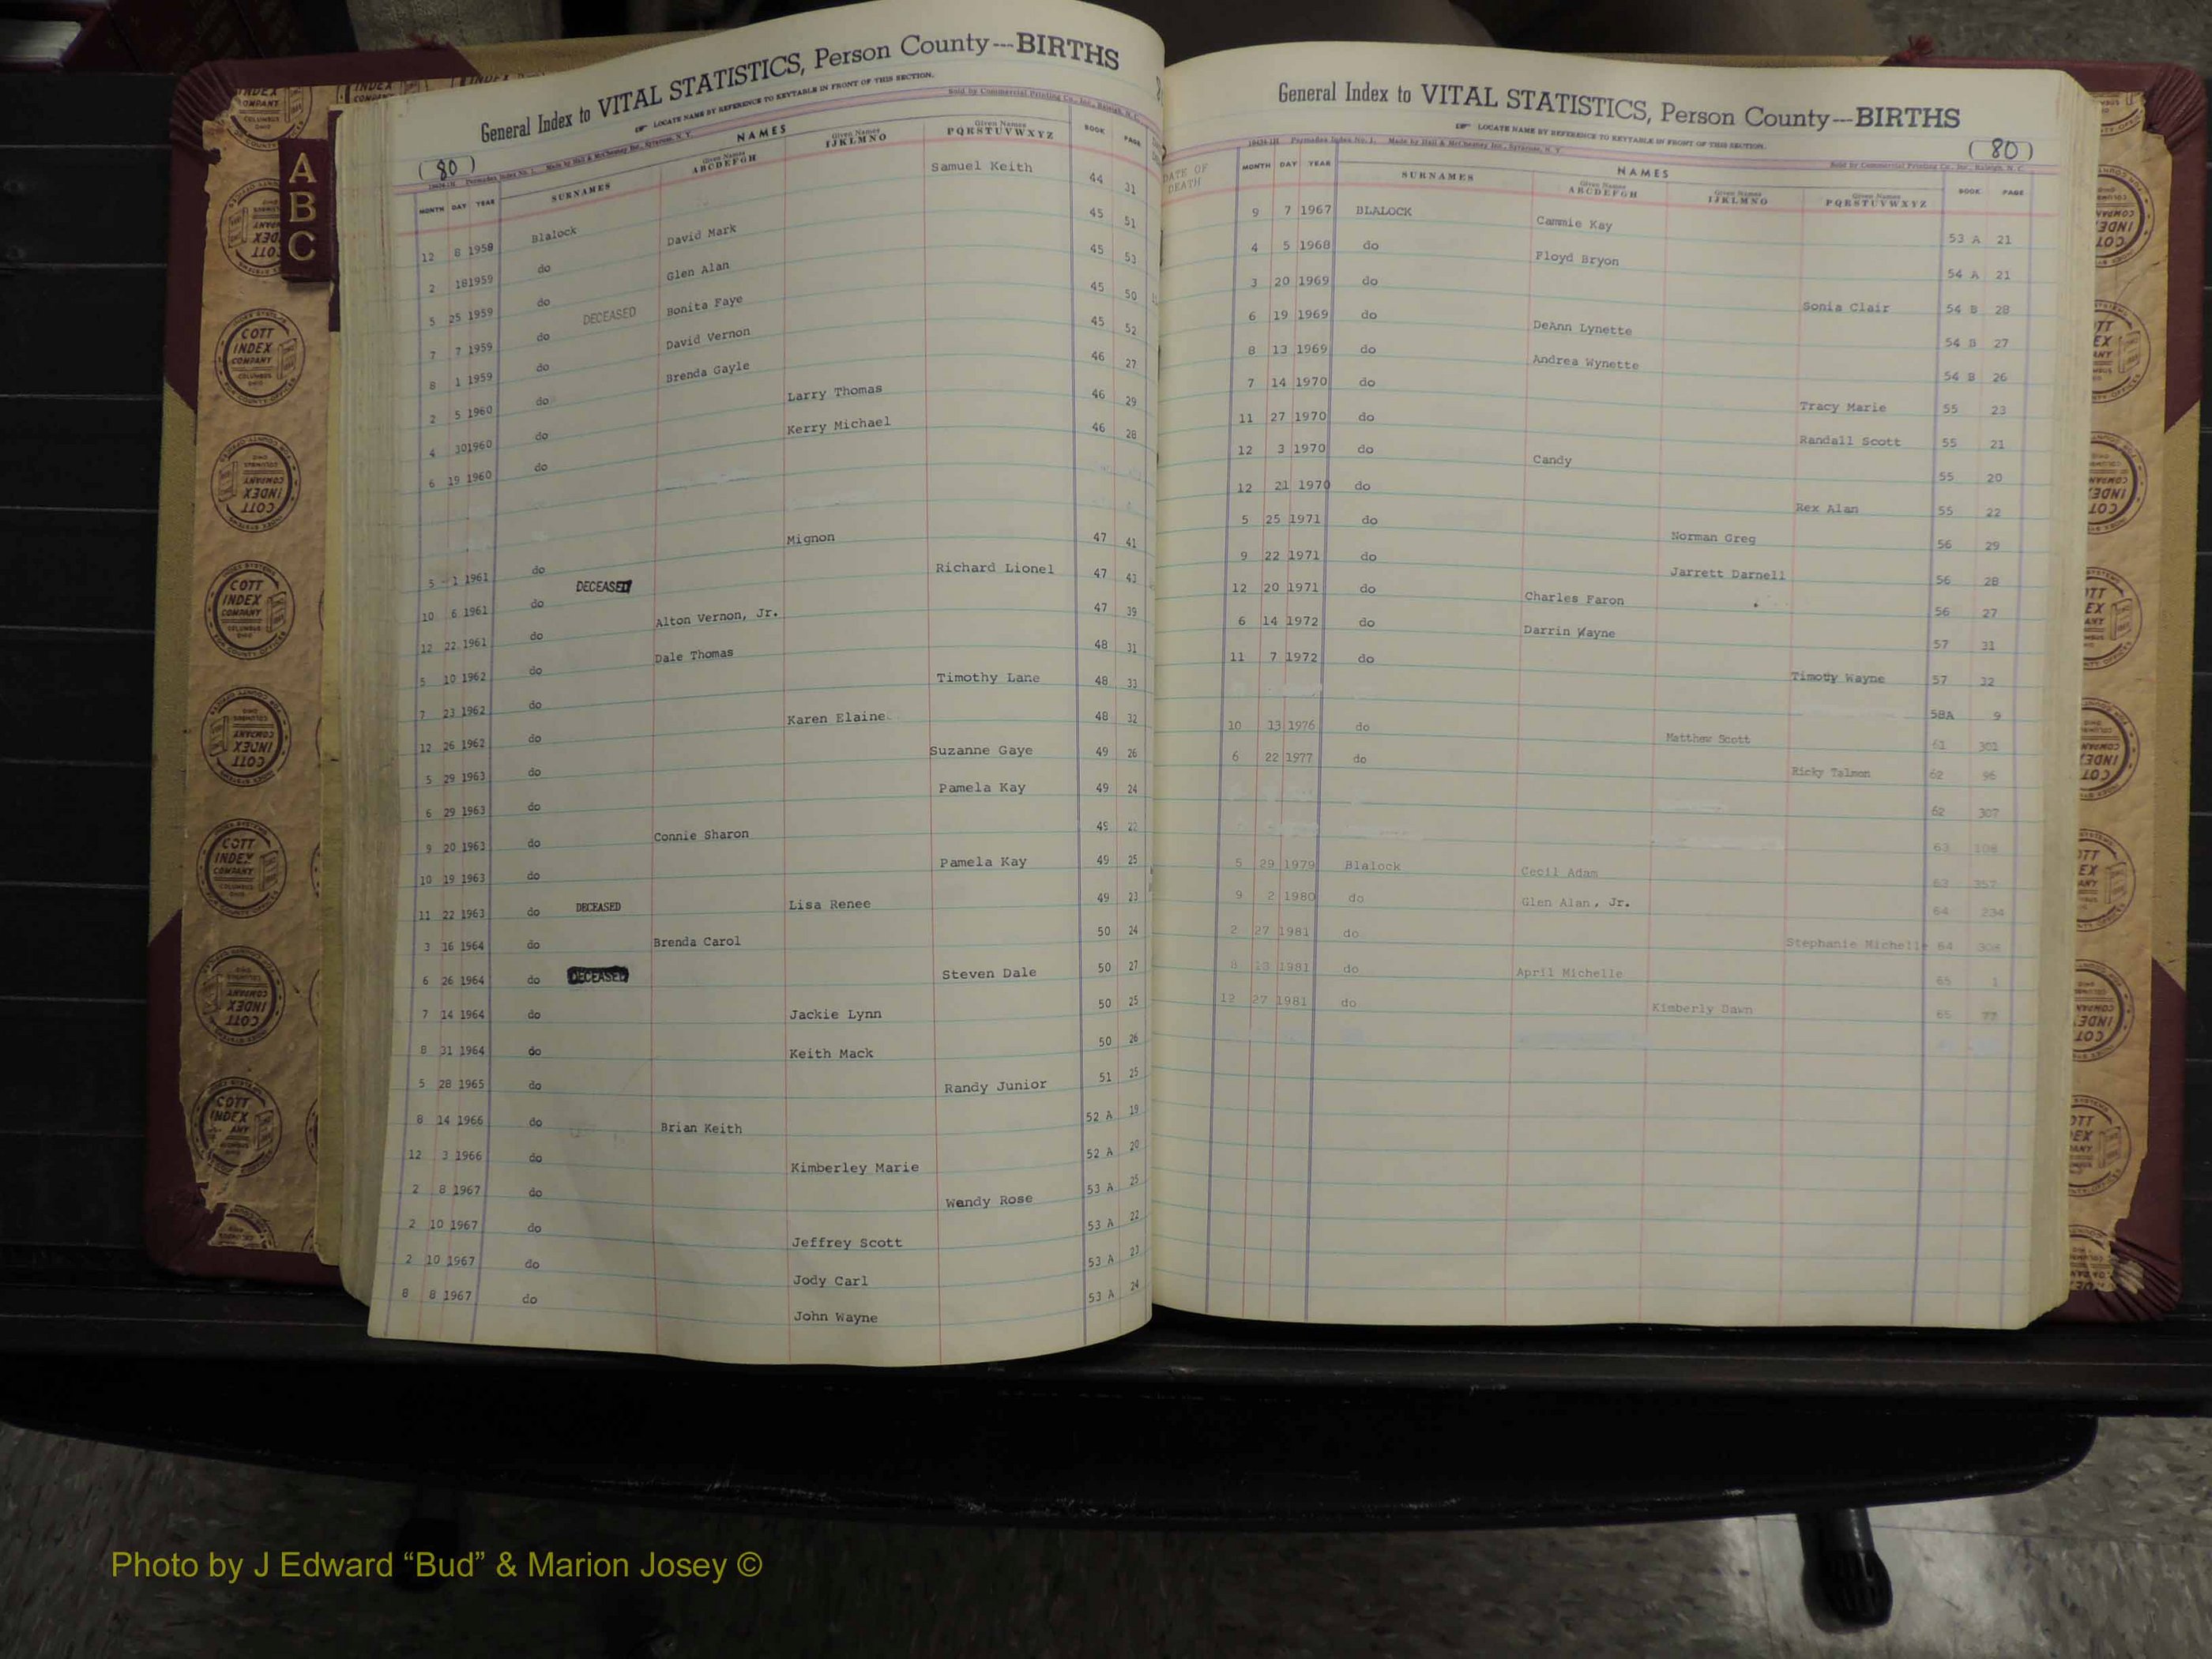 General Index to VITAL STATISTICS, Person County---BIRTHS
LOCATE NAME BY REFERENCE TO KEYTABLE IN FRONT OF THIS SECTION.
Made by Hall & McChesney Inc., Syracuse, N. Y. Sold by Commercial Printing Co., Inc., Raleigh, N. C.
(80)
NAMES
MONTH DAY YEAR SURNAMES Given Names ABCDEFGH Given Names IJKLMNO Given Names PQRSTUVWXYZ BOOK PAGE
12 8 1958 Blalock Samuel Keith 44 31
2 18 1959 do David Mark 45 51
5 25 1959 do Glen Alan 45 53
7 7 1959 do DECEASED Bonita Faye 45 50
8 1 1959 do David Vernon 45 52
2 5 1960 do Brenda Gayle 46 27
4 30 1960 do Larry Thomas 46 29
6 19 1960 do Kerry Michael 46 28
5 1 1961 do Mignon 47 41
10 6 1961 do DECEASED Richard Lionel 47 43
12 22 1961 do Alton Vernon, Jr. 47 39
5 10 1962 do Dale Thomas 48 31
7 23 1962 do Timothy Lane 48 33
12 26 1962 do Karen Elaine 48 32
5 29 1963 do Suzanne Gaye 49 26
6 29 1963 do Pamela Kay 49 24
9 20 1963 do Connie Sharon 49 22
10 19 1963 do Pamela Kay 49 25
11 22 1963 do DECEASED Lisa Renee 49 23
3 16 1964 do Brenda Carol 50 24
6 26 1964 do DECEASED Steven Dale 50 27
7 14 1964 do Jackie Lynn 50 25
8 31 1964 do Keith Mack 50 26
5 28 1965 do Randy Junior 51 25
8 14 1966 do Brian Keith 52 A 19
12 3 1966 do Kimberley Marie 52 A 20
2 8 1967 do Wendy Rose 53 A 25
2 10 1967 do Jeffrey Scott 53 A 22
2 10 1967 do Jody Carl 53 A 23
8 8 1967 do John Wayne 53 A 24
General Index to VITAL STATISTICS, Person County---BIRTHS
LOCATE NAME BY REFERENCE TO KEYTABLE IN FRONT OF THIS SECTION.
Made by Hall & McChesney Inc., Syracuse, N. Y. Sold by Commercial Printing Co., Inc., Raleigh, N. C.
(80)
DATE OF DEATH
NAMES
MONTH DAY YEAR SURNAMES Given Names ABCDEFGH Given Names IJKLMNO Given Names PQRSTUVWXYZ BOOK PAGE
9 7 1967 BLALOCK Cammie Kay 53 A 21
4 5 1968 do Floyd Bryon 54 A 21
3 20 1969 do Sonia Clair 54 B 28
6 19 1969 do DeAnn Lynette 54 B 27
8 13 1969 do Andrea Wynette 54 B 26
7 14 1970 do Tracy Marie 55 23
11 27 1970 do Randall Scott 55 21
12 3 1970 do Candy 55 20
12 21 1970 do Rex Alan 55 22
5 25 1971 do Norman Greg 56 29
9 22 1971 do Jarrett Darnell 56 28
12 20 1971 do Charles Faron 56 27
6 14 1972 do Darrin Wayne 57 31
11 7 1972 do Timothy Wayne 57 32
58A 9
10 13 1976 do Matthew Scott 61 301
6 22 1977 do Ricky Talmon 62 96
62 307
63 108
5 29 1979 Blalock Cecil Adam 63 357
9 2 1980 do Glen Alan, Jr. 64 234
2 27 1981 do Stephanie Michelle 64 308
8 13 1981 do April Michelle 65 1
12 27 1981 do Kimberly Dawn 65 77
A
B
C
COTT INDEX COMPANY COLUMBUS OHIO
Photo by J Edward “Bud” & Marion Josey ©